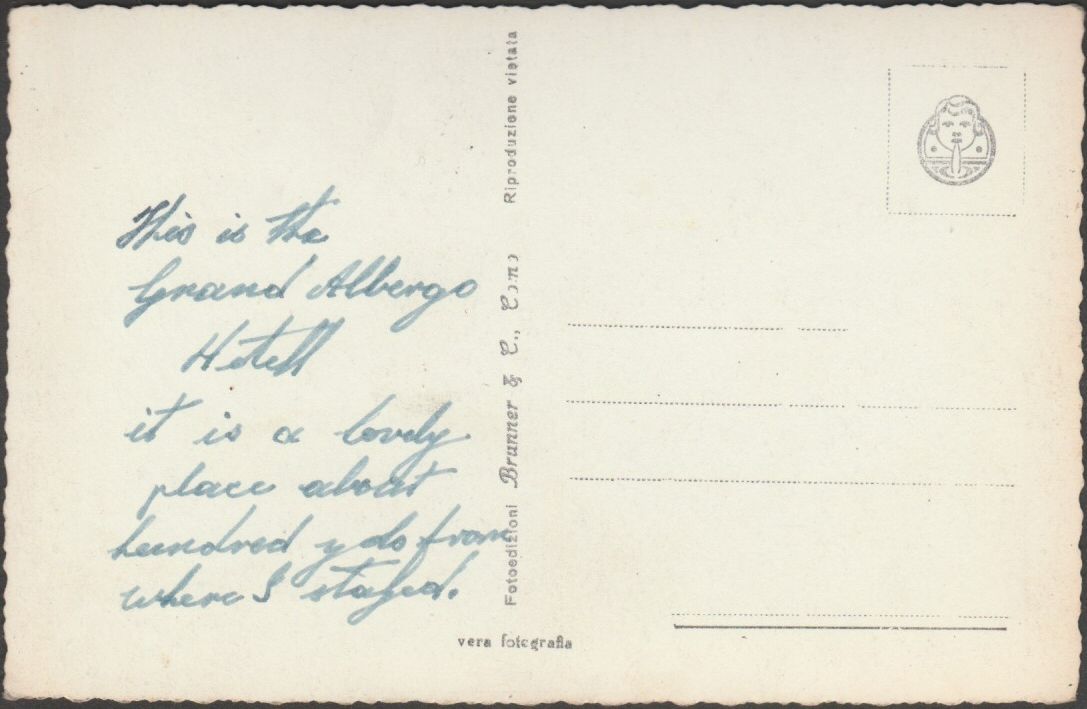 This is the
Grand Albergo
Hotell
it is a lovely
place about
hundred yds from
where I stayed.
Fotoedizioni Brunner & C., Como Riproduzione vietata
vera fotografia